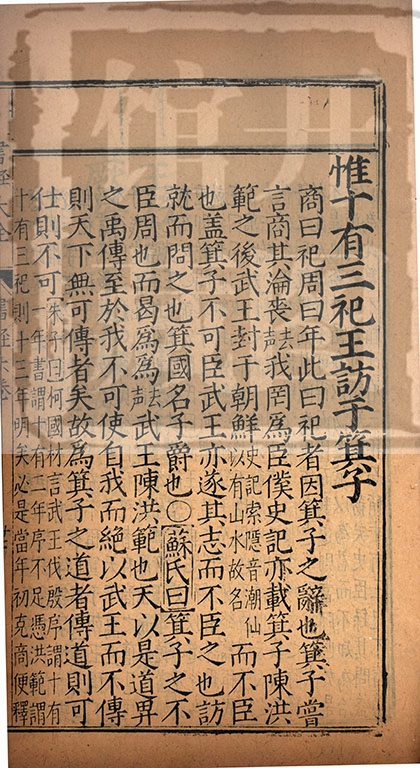 惟十有三祀王訪于箕子
商曰祀周曰年此曰祀者因箕子之辭也箕子嘗
言商其淪喪去聲我罔爲臣僕史記亦載箕子陳洪
範之後武王封于朝鮮史記索隱音潮仙以有山水故名而不臣
也蓋箕子不可臣武王亦遂其志而不臣之也訪
就而問之也箕國名子爵也○蘇氏曰箕子之不
臣周也而曷爲爲去聲武王陳洪範也天以是道畀
之禹傳至於我不可使自我而絕以武王而不傳
則天下無可傳者矣故爲箕子之道者傳道則可
仕則不可朱子曰何國材言武王伐殷序謂十有一年書謂十有三年序不足憑洪範謂
十有三祀則十三年明矣必是當年初克商便釋
書經大全